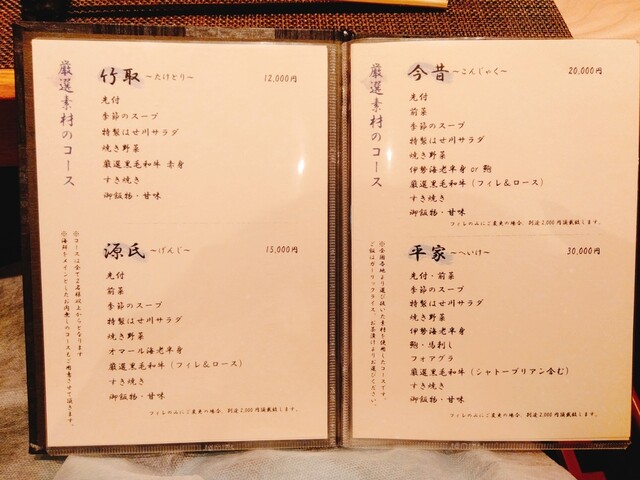 厳選素材のコース
竹取 ～たけとり～ 12,000円
先付
季節のスープ
特製はせ川サラダ
焼き野菜
厳選黒毛和牛 赤身
すき焼き
御飯物・甘味
源氏 ～げんじ～ 15,000円
先付
前菜
季節のスープ
特製はせ川サラダ
焼き野菜
オマール海老半身
厳選黒毛和牛（フィレ＆ロース）
すき焼き
御飯物・甘味
フィレのみにご変更の場合、別途2,000円頂戴致します。
※コースは全て2名様以上からとなります
※海鮮をメインとしたお肉無しのコースもご用意させて頂きます。
厳選素材のコース
今昔 ～こんじゃく～ 20,000円
先付
前菜
季節のスープ
特製はせ川サラダ
焼き野菜
伊勢海老半身 or 鮑
厳選黒毛和牛（フィレ＆ロース）
すき焼き
御飯物・甘味
フィレのみにご変更の場合、別途2,000円頂戴致します。
平家 ～へいけ～ 30,000円
先付・前菜
季節のスープ
特製はせ川サラダ
焼き野菜
伊勢海老半身
鮑・馬刺し
フォアグラ
厳選黒毛和牛（シャトーブリアン含む）
すき焼き
御飯物・甘味
フィレのみにご変更の場合、別途2,000円頂戴致します。
※全国各地より選び抜いた素材を使用したコースです。
ご飯はガーリックライス、お茶漬けよりお選びください。